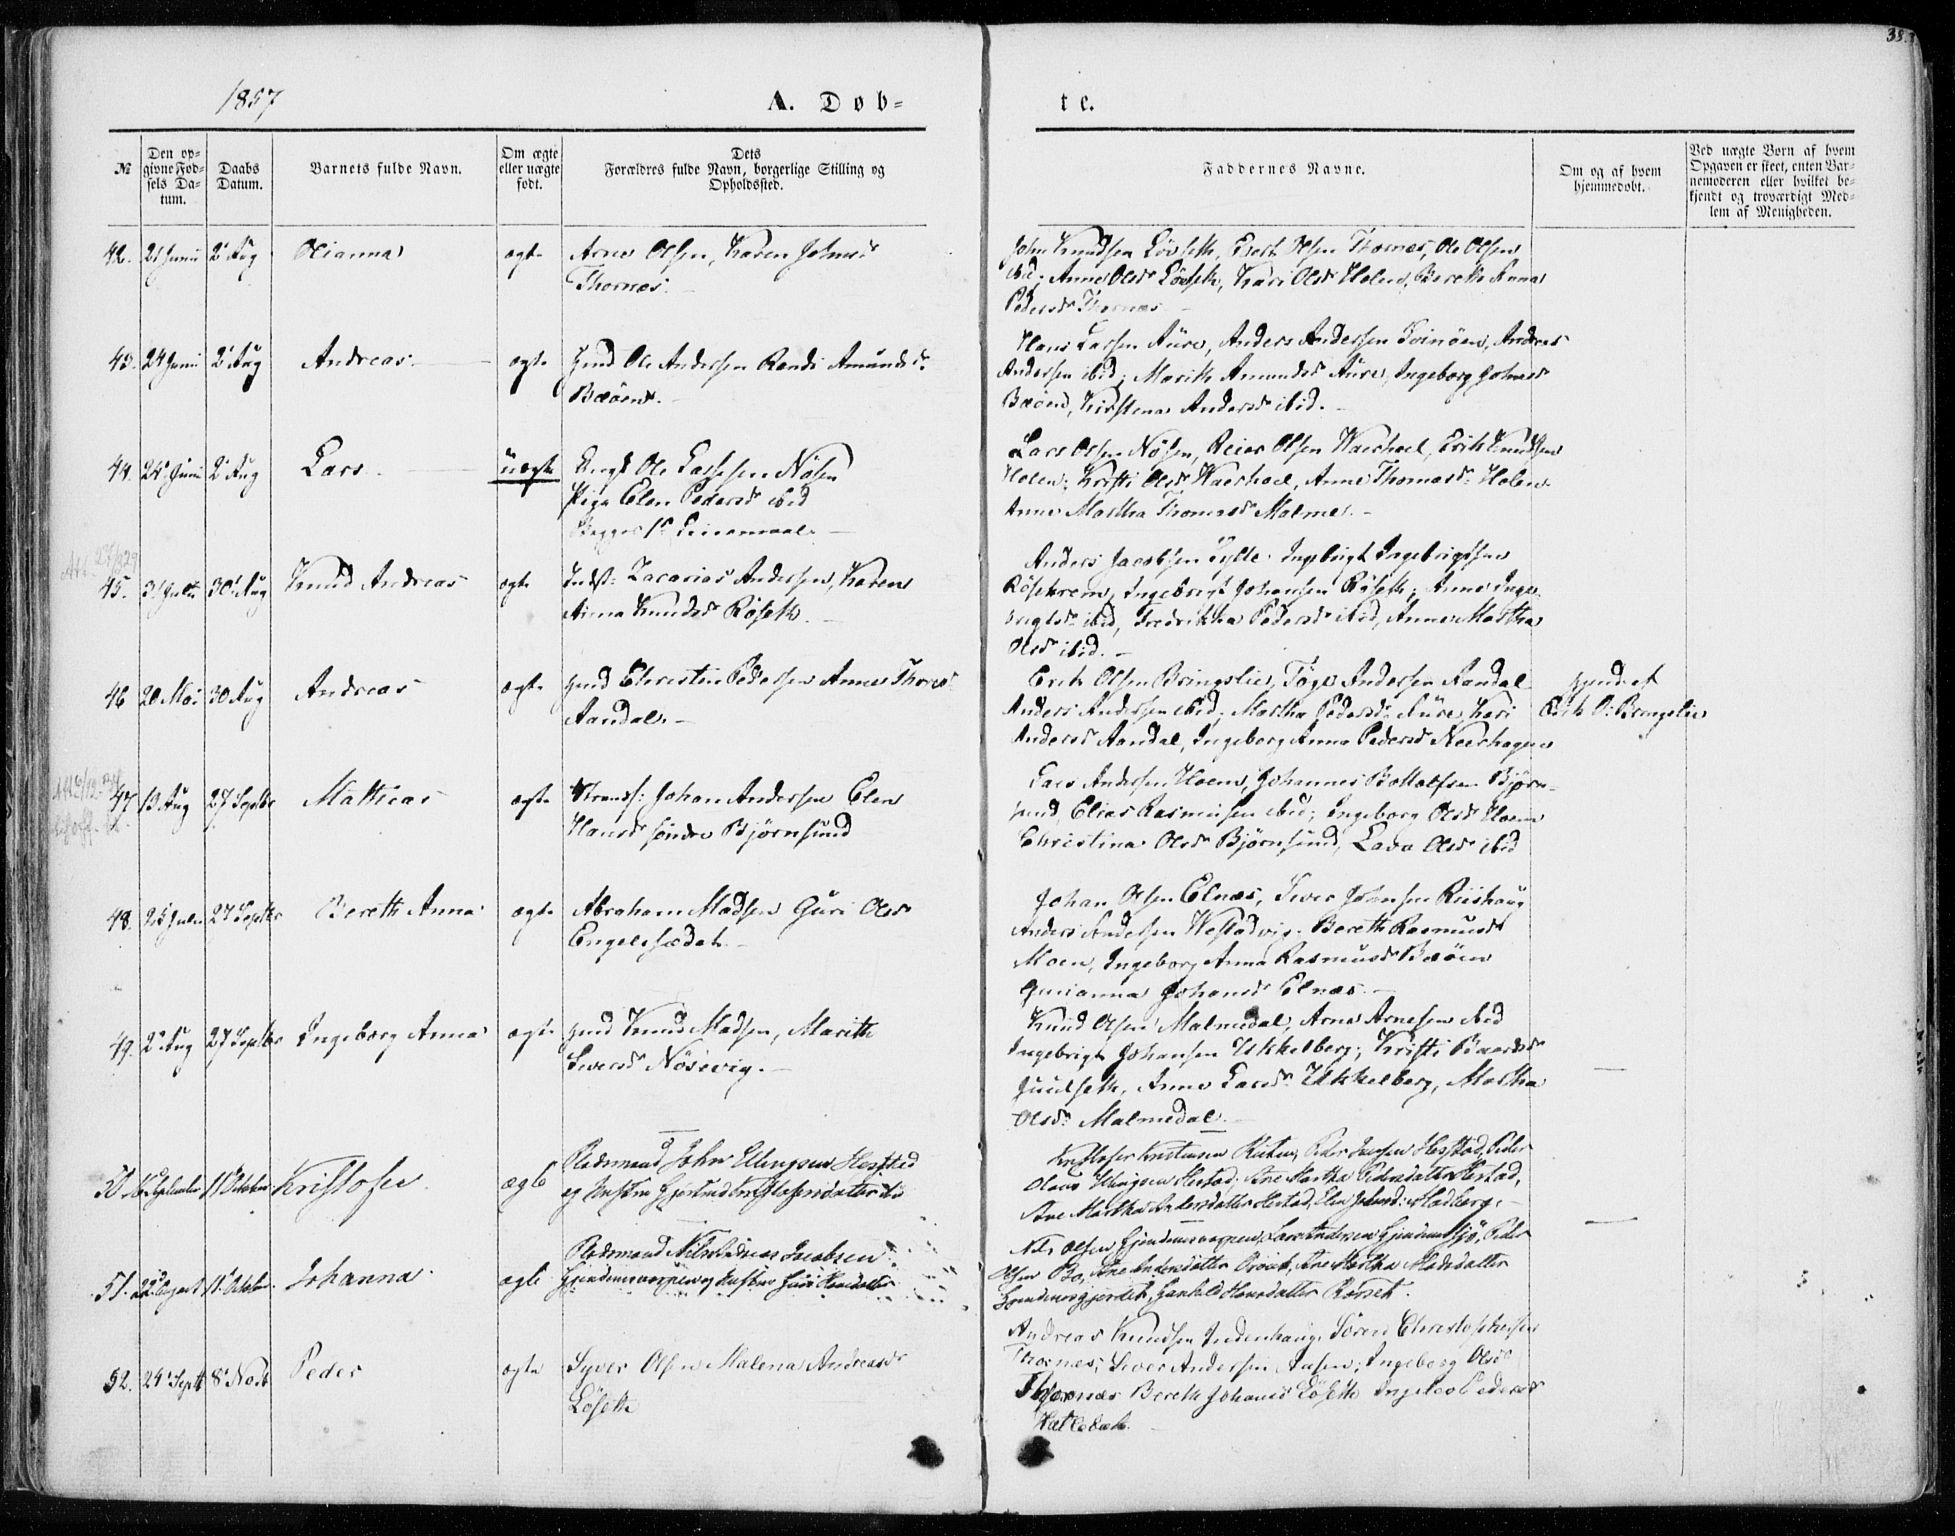 38.
1857
A. Døb-
te.
№
Den op-
givne Fød-
sels Da-
tum.
Daabs
Datum.
Barnets fulde Navn.
Om ægte
eller uægte
født.
Dets
Forældres fulde Navn, borgerlige Stilling og
Opholdssted.
Faddernes Navne.
Om og af hvem
hjemmedøbt.
Ved uægte Børn af hvem
Opgaven er skeet, enten Bar-
nemoderen eller hvilket be-
kjendt og troværdigt Med-
lem af Menigheden.
42. 21 Juni 2 Aug Olianna ægte Arne Olsen, Karen Johnsd
Thornes.
John Knudsen Løvseth, Olsen Thornes, Ole Olsen
ibid; Anne Olsd Løvseth, Kari Olsd Holen, Bereth Anna
Pedersd Thornes
43. 24 Juni 2 Aug Andreas ægte Gmd Ole Andersen Randi Amundsd
Bøøen.
Hans Larsen Aure, Anders Andersen Svinøen, Andreas
Andersen ibid; Marith Amundsd Aure, Ingeborg Johnsd
Bøøen, Kirstena Andersd ibid.
44. 24 Juni 2 Aug Lars uægte Ungk Ole Larsen Nøsen
Pige Elen Pedersd ibid
Begges 1ste Leiermaal
Lars Olsen Nøsen, Reier Olsen Waerhoel, Erik Knudsen
Holen; Kristi Olsd Waerhoel, Anne Thomasd Holen
Anne Martha Thomasd Malme.
45. 3 Juli 30 Aug Knud Andreas ægte Indst: Zacarias Andersen, Karen
Anna Knudsd Røseth.
Anders Jacobsen Hylle. Ingebrigt Ingebrigtsen
Røshrem, Ingebrigt Johansen Røseth; Anne Inge-
brigtsd ibid, Fredrikka Pedersd ibid, Anne Martha
Olsd ibid.
46 20 Mai 30 Aug Andreas ægte Gmd Christen Pedersen Anne Thores
Aandal.
Erik Olsen Bringslie, Tøge Andersen Aandal
Anders Andersen ibid; Martha Pedersd Aure, Kari
Andersd Aandal, Ingeborg Anna Pedersd Neerhagen
hjmd. af
Erik O: Bringslie
47 13 Aug 27 Septbr Mathias ægte Strands: Johan Andersen Elen
Hansd søndre Bjørnsund
Lars Andersen Hoem, Johannes Bottolfsen Bjørn-
sund, Elias Rasmussen ibid; Ingeborg Olsd Hoem
Christina Olsd Bjørnsund, Lava Olsd ibid
48. 25 Juli 27 Septbr Bereth Anna ægte Abraham Madsen Guri Olsd
Engelsædet.
Johan Olsen Elnæs, Siver Johnsen Riishaug
Anders Andersen Westadvig. Bereth Rasmusd
Moen, Ingeborg Anna Rasmusd Bøøen
Gurianna Johansd Elnæs.
49. 2 Aug 27 Septbr Ingeborg Anna ægte Gmd Knud Madsen, Marith
Siversd Nøsevig.
Knud Olsen Malmedal, Arne Arnesen ibid
Ingebrigt Johansen Ukkelberg; Kristi Baardsd
Juulseth, Anne Larsd Ukkelberg, Martha
Olsd Malmedal.
50. 16 September 11 October Kristofer ægte Pladsmand John Ellingsen Hestad
og Hustru Gjertrud Kristofersdatter ibid
Kristofer Kristensen, Peder Hestad, Peder
Olaus Ellingsen Hestad; Ane Martha Pedersdatter Hestad,
Ane Martha Andersdatter Hestad, Elen Johnsd:
51. 22 August 11 October Johanna ægte Pladsmand Nils Andreas Jacobsen
og Hustru Guri Hansdatter
Nils Olsen, Lars Andersen, Peder
Olsen Bø, Ane Andersdatter, Ane Martha Madsdatter
, Gunhild Hansdatter Rørset.
52. 24 Septb 8 Novb Peder ægte Syver Olsen Malena Andreasd
Løseth
Andreas Knudsen Indenhaug, Søren Christophersen
Thornes; Siver Andersen Aasen; Ingeborg Olsd
Thornes Bereth Johansd Løseth Ingeborg Pedersd
Hatlebak.